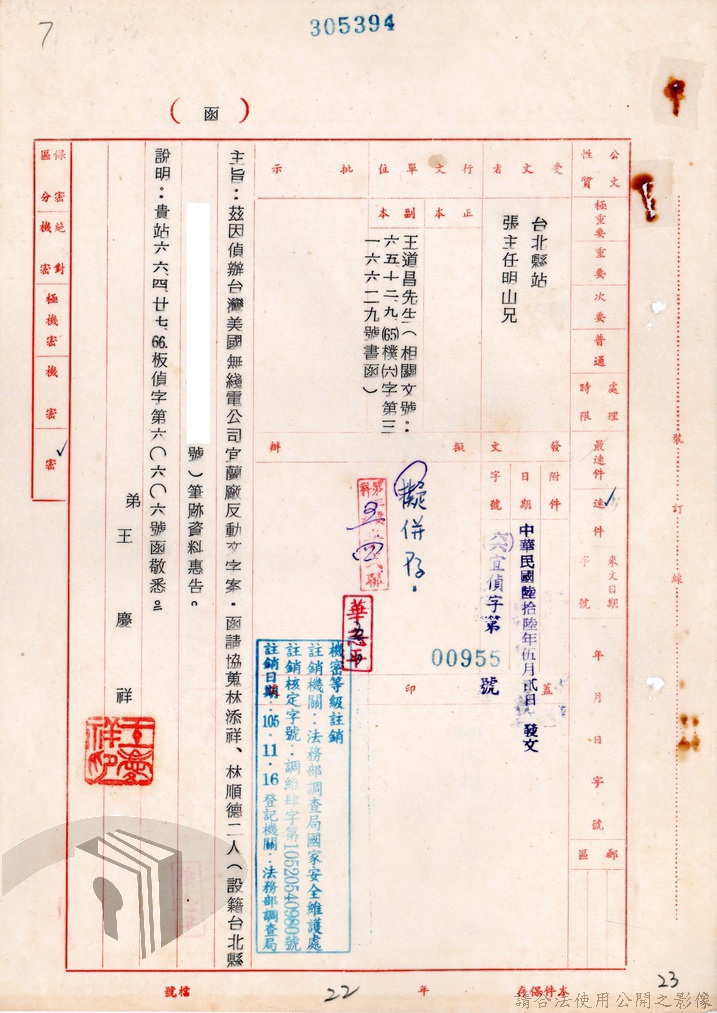 7
305394
（函）
公文性質
極重要
重要
次要
普通
處理時限
最速件
速件 ✓
來文日期字號
年月日字號
郵區
受文者
台北縣站
張主任明山兄
行文單位
正本
副本
王道昌先生（相關文號：
六五十二、九、(65)樸㈥字第三
一六六二九號書函）
批示
發文
附件
日期
中華民國陸拾陸年伍月貳日發文
字號
㊅宜偵字第
00955
號
蓋印
擬辦
擬併存。
五
四
主旨：茲因偵辦台灣美國無綫電公司宜蘭廠反動文字案，函請協蒐林添祥、林順德二人（設籍台北縣
號）筆跡資料惠告。
說明：貴站六六、四、廿七、66.板偵字第六〇六〇六號函敬悉。
弟 王慶祥
王慶祥印
機密等級註銷
註銷機關：法務部調查局國家安全維護處
註銷核定字號：調維肆字第10520540980號
註銷日期：105.11.16 登記機關：法務部調查局
保密區分
絕對機密
極機密
機密
密 ✓
裝訂線
本件保存
22
年
檔號
23
請合法使用公開之影像